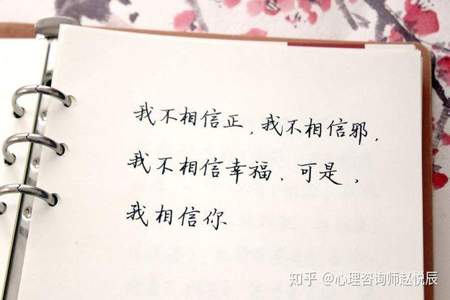 我不相信正,我不相信邪,
我不相信幸福、可是,
我相信你
知乎 @心理咨询师赵悦辰